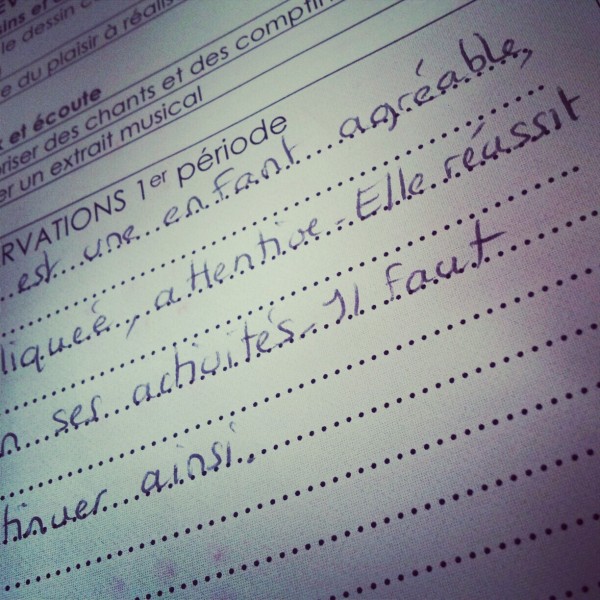 le dessin
e du plaisir à réalis
et écoute
oriser des chants et des comptin
er un extrait musical
RVATIONS 1er période
est une enfant agréable,
liqueé, attentive. Elle réussit
n ses activités. Il faut
tinuer ainsi.